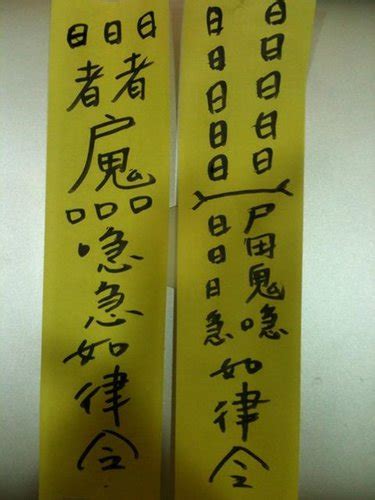 日日日
者者
口口口
喼
急
如
律
令
日日
日日
日日
日日
日日
日尸
日田
日鬼
急喼
如
律
令